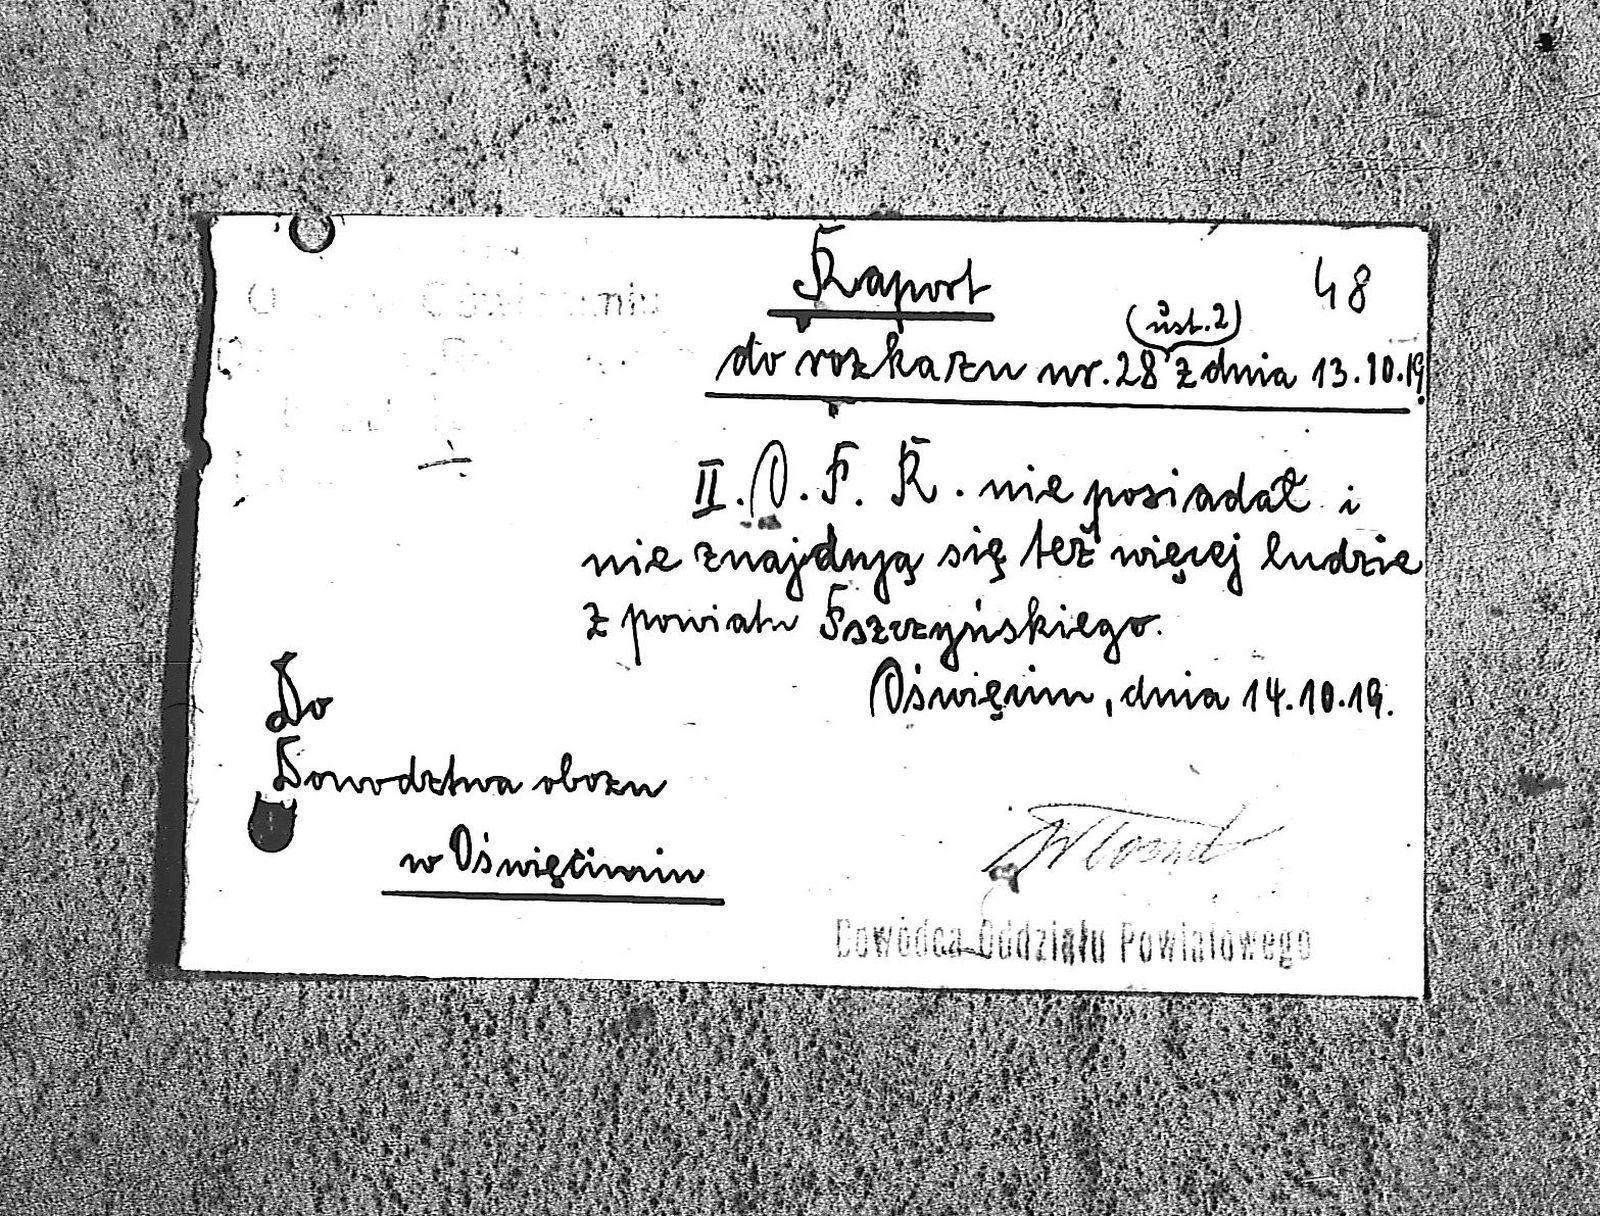 48
Raport
(ust. 2)
do rozkazu nr. 28 z dnia 13.10.19.
II. O. P. R. nie posiadał i
nie znajdują się też więcej ludzie
z powiatu Pszczyńskiego.
Oświęcim, dnia 14.10.19.
Do
Dowodztwa obozu
w Oświęcimiu
Dowódca Oddziału Powiatowego